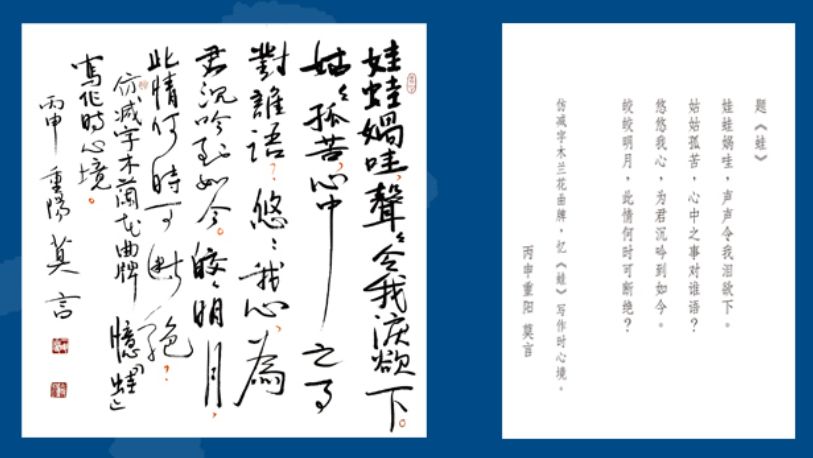 娃蛙娲哇，聲聲令我淚欲下。
姑姑孤苦，心中之事
對誰語？悠悠我心，為
君沉吟到如今。皎皎明月，
此情何時可斷絕？
仿减字木蘭花曲牌 憶「蛙」
寫作时心境。
丙申 重陽 莫言
题《蛙》
娃蛙娲哇，声声令我泪欲下。
姑姑孤苦，心中之事对谁语？
悠悠我心，为君沉吟到如今。
皎皎明月，此情何时可断绝？
仿减字木兰花曲牌，忆《蛙》写作时心境。
丙申重阳 莫言